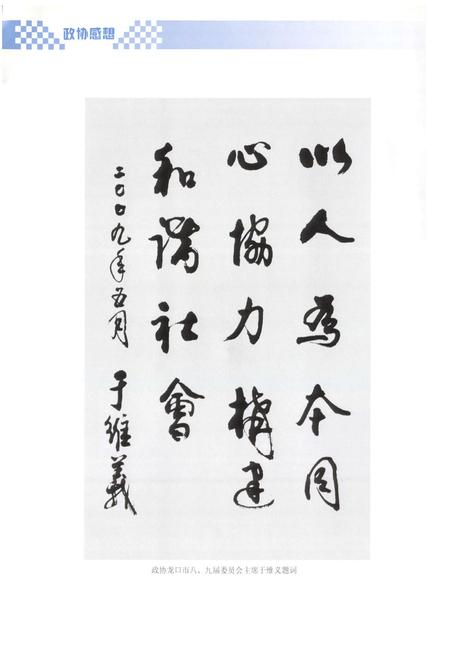 政协感想
以人为本同
心協力構建
和谐社會
二〇〇九年五月 于維義
政协龙口市八、九届委员会主席于维义题词